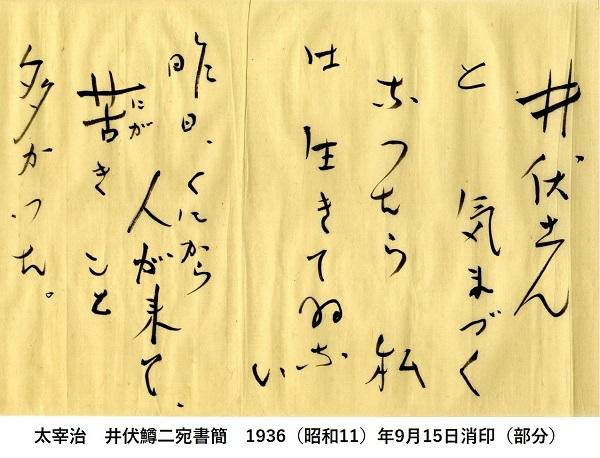 井伏さん
と 気まづく
なつたら 私
は 生きてゐない
昨日、くにから
人が来て、
苦き こと
にが
多かつた。
太宰治 井伏鱒二宛書簡 1936(昭和11)年9月15日消印(部分)